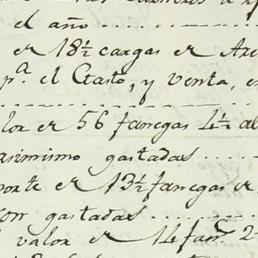 el año
er 18½ cargas er
pª. el Gasto, y venta,
er 56 fanegas 4½ al
asimismo gastadas
er 13½ fanegas er
gastadas
valor er 14 fanˢ. 2